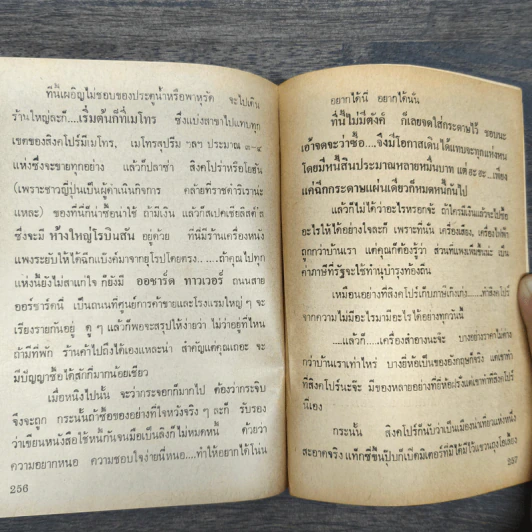 ทีนี้เผอิญไม่ชอบของประตูน้ำหรือพาหุรัด จะไปเดิน
ร้านใหญ่ละก็....เริ่มต้นก็ที่เมโทร ซึ่งแบ่งสาขาไปแทบทุก
เขตของสิงคโปร์มีเมโทร, เมโทรสุปรีม ฯลฯ ประมาณ ๓-๔
แห่งซึ่งจะขายทุกอย่าง แล้วก็ปลาซ่า สิงคโปร่าหรือโยฮัน
(เพราะชาวญี่ปุ่นเป็นผู้ดำเนินกิจการ คล้ายที่ราชดำริเรานะ
แหละ) ของที่นี่ก็น่าซื้อน่าใช้ ถ้ามีเงิน แล้วก็สเปคเชียลิสต์ส
ซึ่งจะมี ห้างใหญ่โรบินสัน อยู่ด้วย ที่นี่มีร้านเครื่องหนัง
แพงระยับให้ได้ฉีกแบ้งค์มาจากยุโรปโดยตรง......ถ้าคุณไปทุก
แห่งนี้ยังไม่สาแก่ใจ ก็ยังมี ออชาร์ด ทาวเวอร์ ถนนสาย
ออร์ชาร์ดนี้ เป็นถนนที่ศูนย์การค้าชายและโรงแรมใหญ่ ๆ จะ
เรียงรายกันอยู่ ดู ๆ แล้วก็พอจะสรุปให้ง่ายว่า ไม่ว่าอยู่ที่ไหน
ถ้ามีที่พัก ร้านค้าไปถึงได้เองแหละน่า สำคัญแต่คุณเถอะ จะ
มีปัญญาซื้อได้สักกี่มากน้อยเชียว
เมื่อหนังไปนั้น จะว่ากระจอกก็มากไป ต้องว่ากระจิบ
จึงจะถูก กระนั้นถ้าซื้อของอย่างที่ใจหวังจริง ๆ ละก็ รับรอง
ว่าเขียนหนังสือใช้หนี้กันจนมือเป็นลิงก็ไม่หมดหนี้ ด้วยว่า
ความอยากหนอ ความชอบใจง่ายนี่หนอ....ทำให้อยากได้โน่น
256
อยากได้นี่ อยากได้นั่น
ทีนี้ไม่มีตังค์ ก็เลยจดใส่กระดาษไว้ ชอบนะ
เอ้าจดจะว่าซื้อ....จึงมีโอกาสเดินได้แทบจะทุกแห่งหน
โดยมีหนี้สินประมาณหลายหมื่นบาท แต่ ฮะ ฮะ...เพียง
แค่ฉีกกระดาษแผ่นเดียวก็หมดหนี้กันไป
แล้วก็ไม่ได้ว่าอะไรหรอกจ้ะ ถ้าใครมีเงินแล้วจะไปซื้อ
อะไรให้ได้อย่างใจละก็ เพราะที่นั่น เครื่องเสียง, เครื่องไฟฟ้า
ถูกกว่าบ้านเรา แต่คุณก็ต้องรู้ว่า ส่วนที่แพงเพิ่มขึ้นน่ะ เป็น
ค่าภาษีที่รัฐจะใช้ทำนุบำรุงท้องถิ่น
เหมือนอย่างที่สิงคโปร์เก็บภาษีเก่งเก่ง....ทำสิงคโปร์
จากความไม่มีอะไรมามีอะไรได้อย่างทุกวันนี้
....แล้วก็....เครื่องสำอางน่ะจ้ะ บางอย่างราคาไม่ต่าง
กว่าบ้านเราเท่าไหร่ บางยี่ห้อเป็นของอังกฤษก็จริง แต่เขาทำ
ที่สิงคโปร์น่ะจ้ะ มีของหลายอย่างที่ยี่ห้อฝรั่งแต่เขาทำที่สิงคโปร์
นี่เอง
กระนั้น สิงคโปร์ก็นับว่าเป็นเมืองน่าเที่ยวแห่งหนึ่ง
สะอาดจริง แท็กซี่ขึ้นปุ๊บก็เปิดมิเตอร์
257